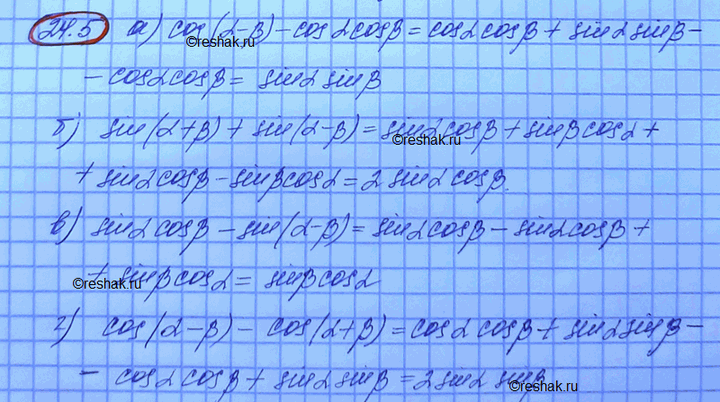 24.5 а) cos(α-β)-cosα cosβ = cosα cosβ + sinα sinβ -
©reshak.ru
- cosα cosβ = sinα sinβ
б) sin(α+β) + sin(α-β) = sinα cosβ + sinβ cosα +
©reshak.ru
+ sinα cosβ - sinβ cosα = 2 sinα cosβ.
в) sinα cosβ - sin(α-β) = sinα cosβ - sinα cosβ +
+ sinβ cosα = sinβ cosα
©reshak.ru
г) cos(α-β) - cos(α+β) = cosα cosβ + sinα sinβ -
- cosα cosβ + sinα sinβ = 2 sinα sinβ
©reshak.ru